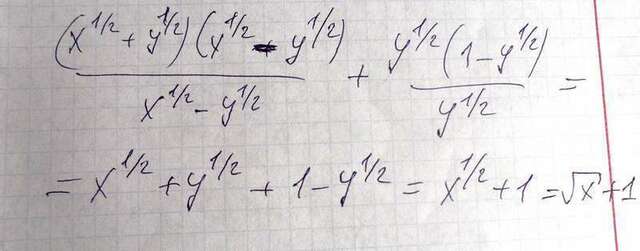 (x^{1/2} + y^{1/2})(x^{1/2} - y^{1/2}) / x^{1/2} - y^{1/2} + y^{1/2}(1 - y^{1/2}) / y^{1/2} =
= x^{1/2} + y^{1/2} + 1 - y^{1/2} = x^{1/2} + 1 = √x + 1